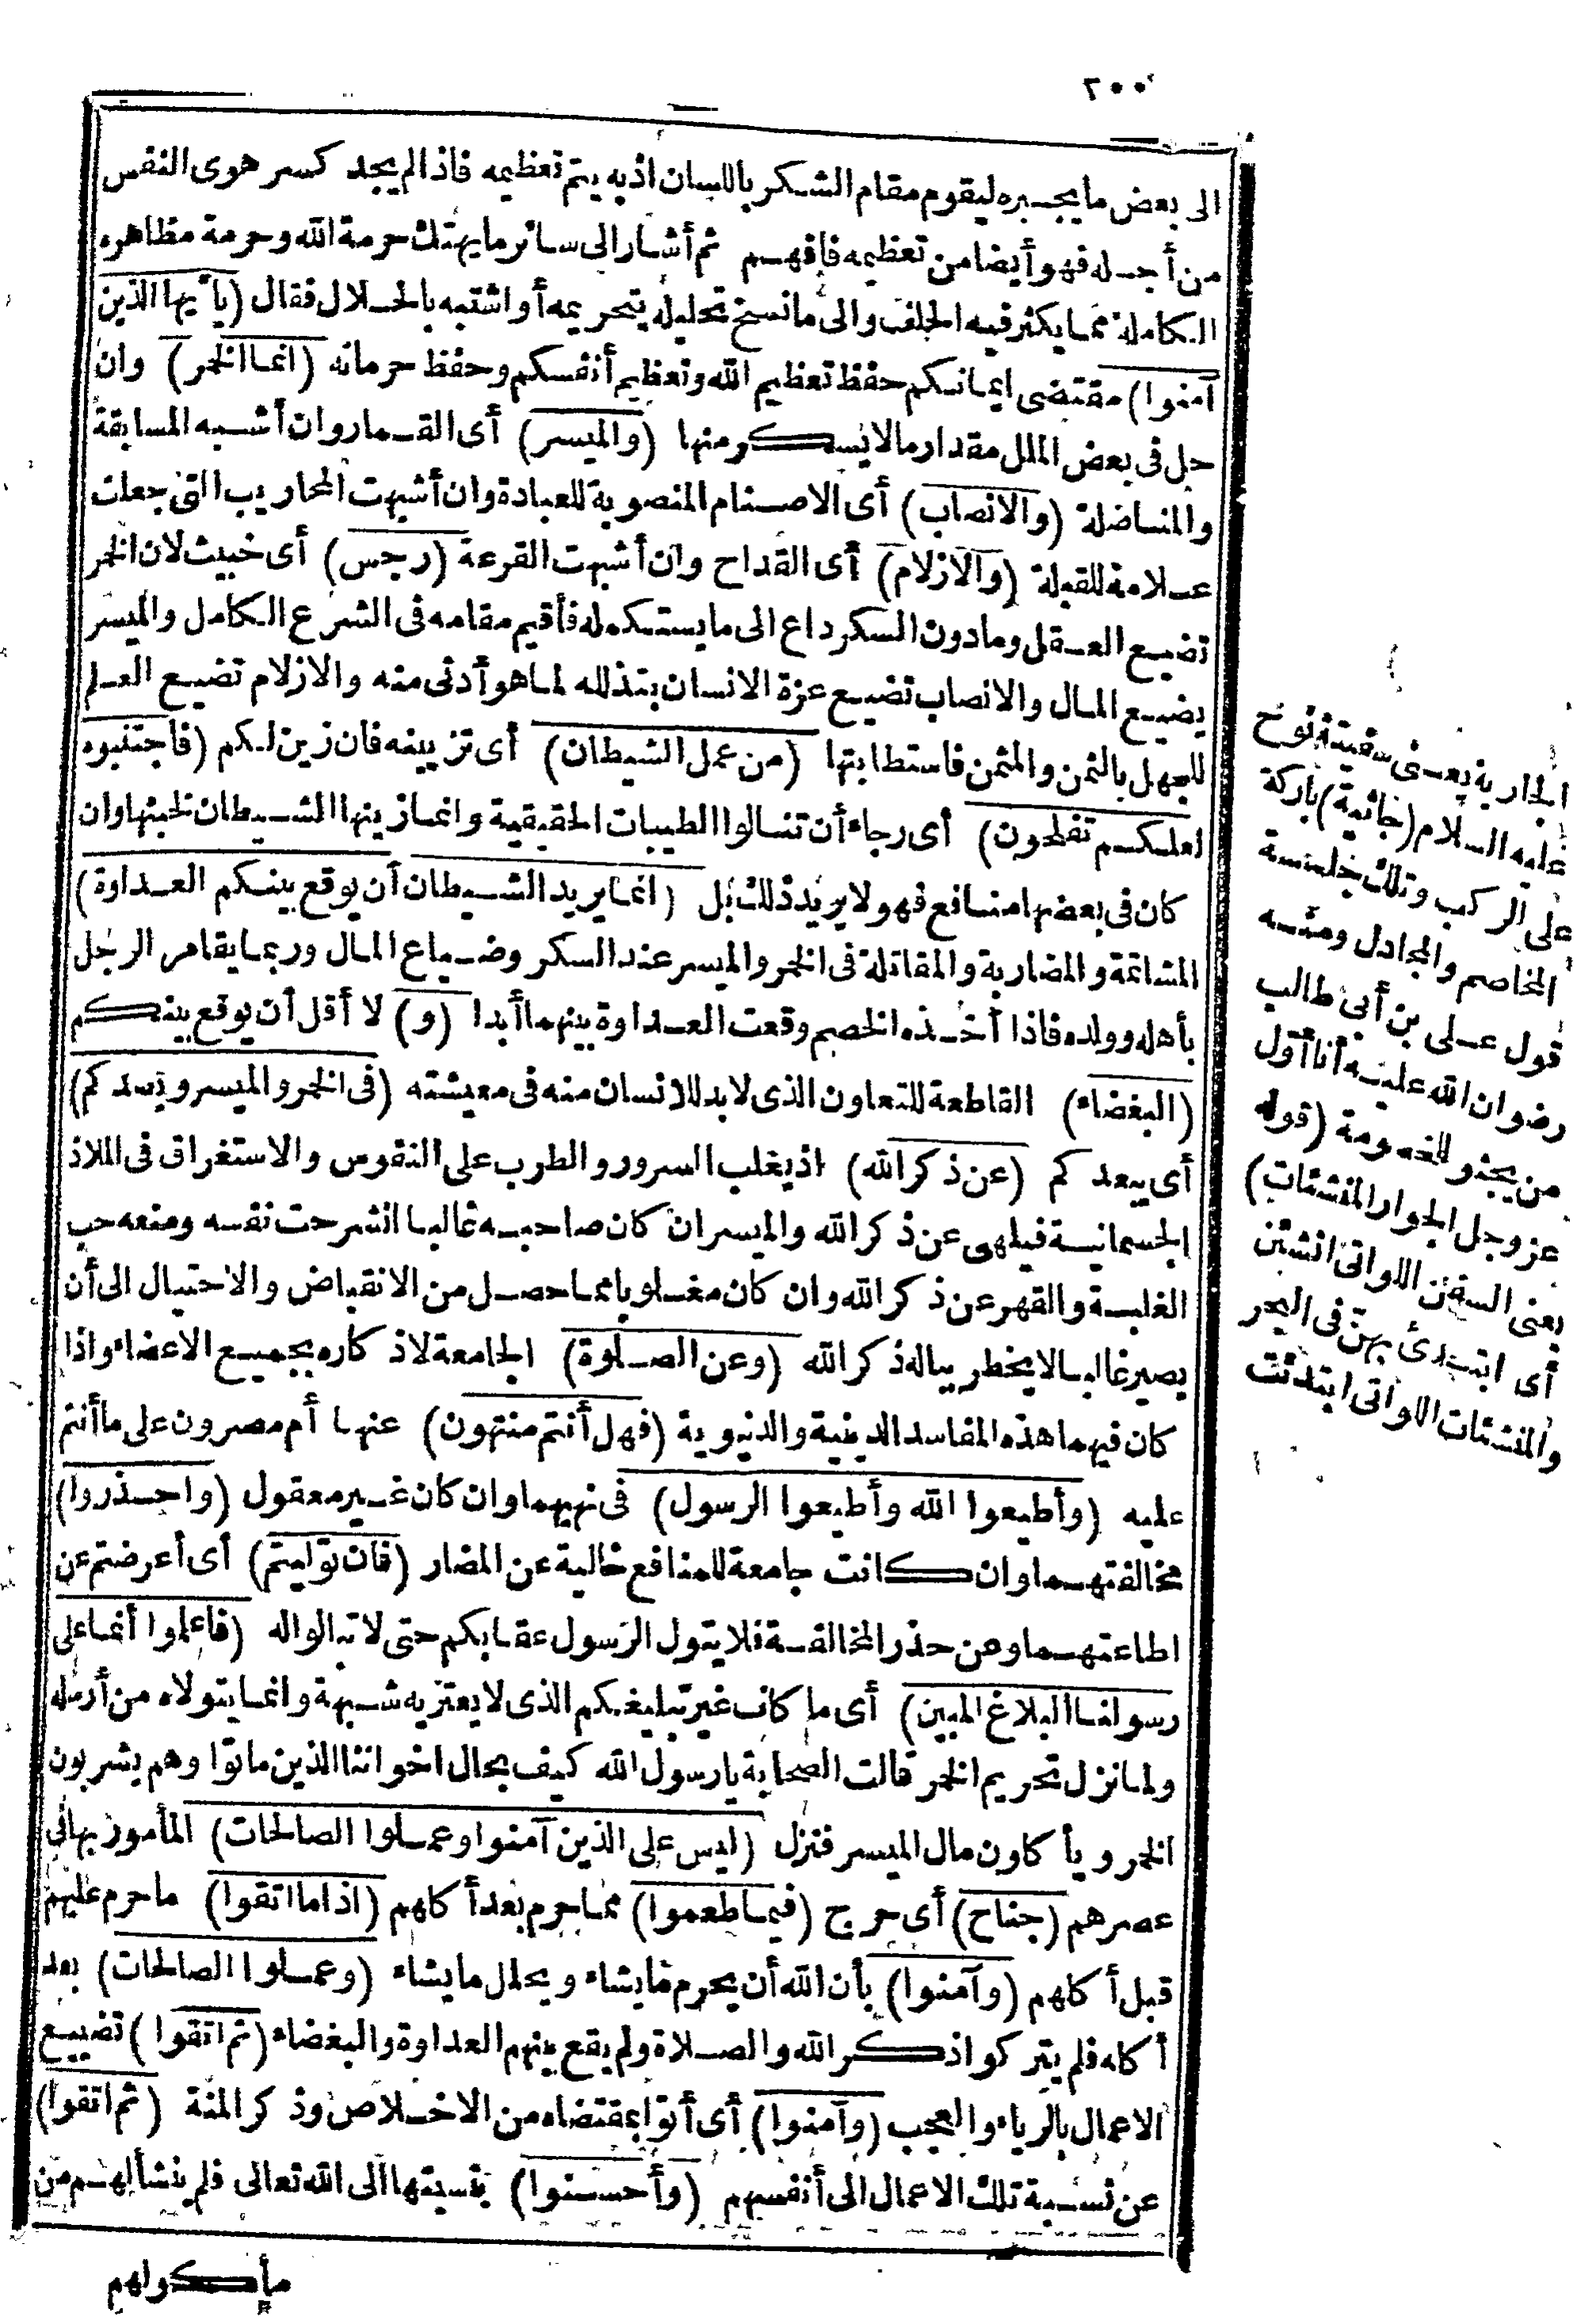 ٢٠٠
الى بعض ما يجبره ليقوم مقام الشكر باللسان اذ به يتم تعظيمه فاذا لم يجد كسر هوى النفس
من أجله فهو أيضا من تعظيمه فافهم ثم أشار الى سائر ما يهتك حرمة الله وحرمة مظاهره
الكاملة مما يكثر فيه الحلف والى ما نسخ تحليله بتحريمه أو اشتبه بالحلال فقال (يا أيها الذين
آمنوا) مقتضى ايمانكم حفظ تعظيم الله وتعظيم أنفسكم وحفظ حرماته (انما الخمر) وان
حل فى بعض الملل مقدار ما لا يسكر منها (والميسر) أى القمار وان أشبه المسابقة
والمناضلة (والانصاب) أى الاصنام المنصوبة للعبادة وان أشبهت المحاريب التى جعلت
علامة للقبلة (والازلام) أى القداح وان أشبهت القرعة (رجس) أى خبيث لان الخمر
تضيع العقل وما دون السكر داع الى ما يستكمله فأقيم مقامه فى الشرع الكامل والميسر
يضيع المال والانصاب تضيع عزة الانسان بتذلله لما هو أدنى منه والازلام تضيع العلم
للجهل بالثمن والمثمن فاستطابتها (من عمل الشيطان) أى تزيينه فان زين لكم (فاجتنبوه
لعلكم تفلحون) أى رجاء أن تنالوا الطيبات الحقيقية وانما زينها الشيطان لخبثها وان
كان فى بعضها منافع فهو لا يريد ذلك بل (انما يريد الشيطان أن يوقع بينكم العداوة)
المشاتمة والمضاربة والمقاتلة فى الخمر والميسر عند السكر وضياع المال وربما يقامر الرجل
بأهله وولده فاذا أخذه الخصم وقعت العداوة بينهما أبدا (و) لا أقل أن يوقع بينكم
(البغضاء) القاطعة للتعاون الذى لابد للانسان منه فى معيشته (فى الخمر والميسر ويصدكم)
أى يبعدكم (عن ذكر الله) اذ يغلب السرور والطرب على النفوس والاستغراق فى الملاذ
الجسمانية فيلهى عن ذكر الله والميسر ان كان صاحبه غالبا انشرحت نفسه ومنعه حب
الغلبة والقهر عن ذكر الله وان كان مغلوبا مما حصل من الانقباض والاحتيال الى أن
يصير غالبا لا يخطر بباله ذكر الله (وعن الصلوة) الجامعة لاذكاره بجميع الاعضاء واذا
كان فيهما هذه المفاسد الدينية والدنيوية (فهل أنتم منتهون) عنها أم مصرون على ما أنتم
عليه (وأطيعوا الله وأطيعوا الرسول) فى نهيهما وان كان غير معقول (واحذروا)
مخالفتهما وان كانت جامعة للمنافع خالية عن المضار (فان توليتم) أى أعرضتم عن
اطاعتهما وعن حذر المخالفة فلا يتول الرسول عقابكم حتى لا تبالوا له (فاعلموا أنما على
رسولنا البلاغ المبين) أى ما كان غير تبليغكم الذى لا يعتريه شبهة وانما يتولاه من أرسله
ولما نزل تحريم الخمر قالت الصحابة يا رسول الله كيف بحال اخواننا الذين ماتوا وهم يشربون
الخمر ويأكلون مال الميسر فنزل (ليس على الذين آمنوا وعملوا الصالحات) المأمور بها فى
عصرهم (جناح) أى حرج (فيما طعموا) مما حرم بعد أكلهم (اذا ما اتقوا) ما حرم عليهم
قبل أكلهم (وآمنوا) بأن الله أن يحرم ما يشاء ويحلل ما يشاء (وعملوا الصالحات) بعد
أكله فلم يتركوا ذكر الله والصلاة ولم يقع بينهم العداوة والبغضاء (ثم اتقوا) تضييع
الاعمال بالرياء والعجب (وآمنوا) أى أتوا بمقتضاه من الاخلاص وذكر المنة (ثم اتقوا)
عن نسبة تلك الاعمال الى أنفسهم (وأحسنوا) بنسبتها الى الله تعالى فلم ينشأ لهم من
مأكولهم
الجارية يعنى سفينة نوح
عليه السلام (جاثية) باركة
على الركب وتلك جلسة
المخاصم والمجادل ومنه
قول على بن أبى طالب
رضوان الله عليه أنا أول
من يجثو للخصومة (قوله
عز وجل الجوار المنشئات)
يعنى السفن اللواتى انشئن
أى ابتدئ بهن فى البحر
والمنشئات اللواتى ابتدئت